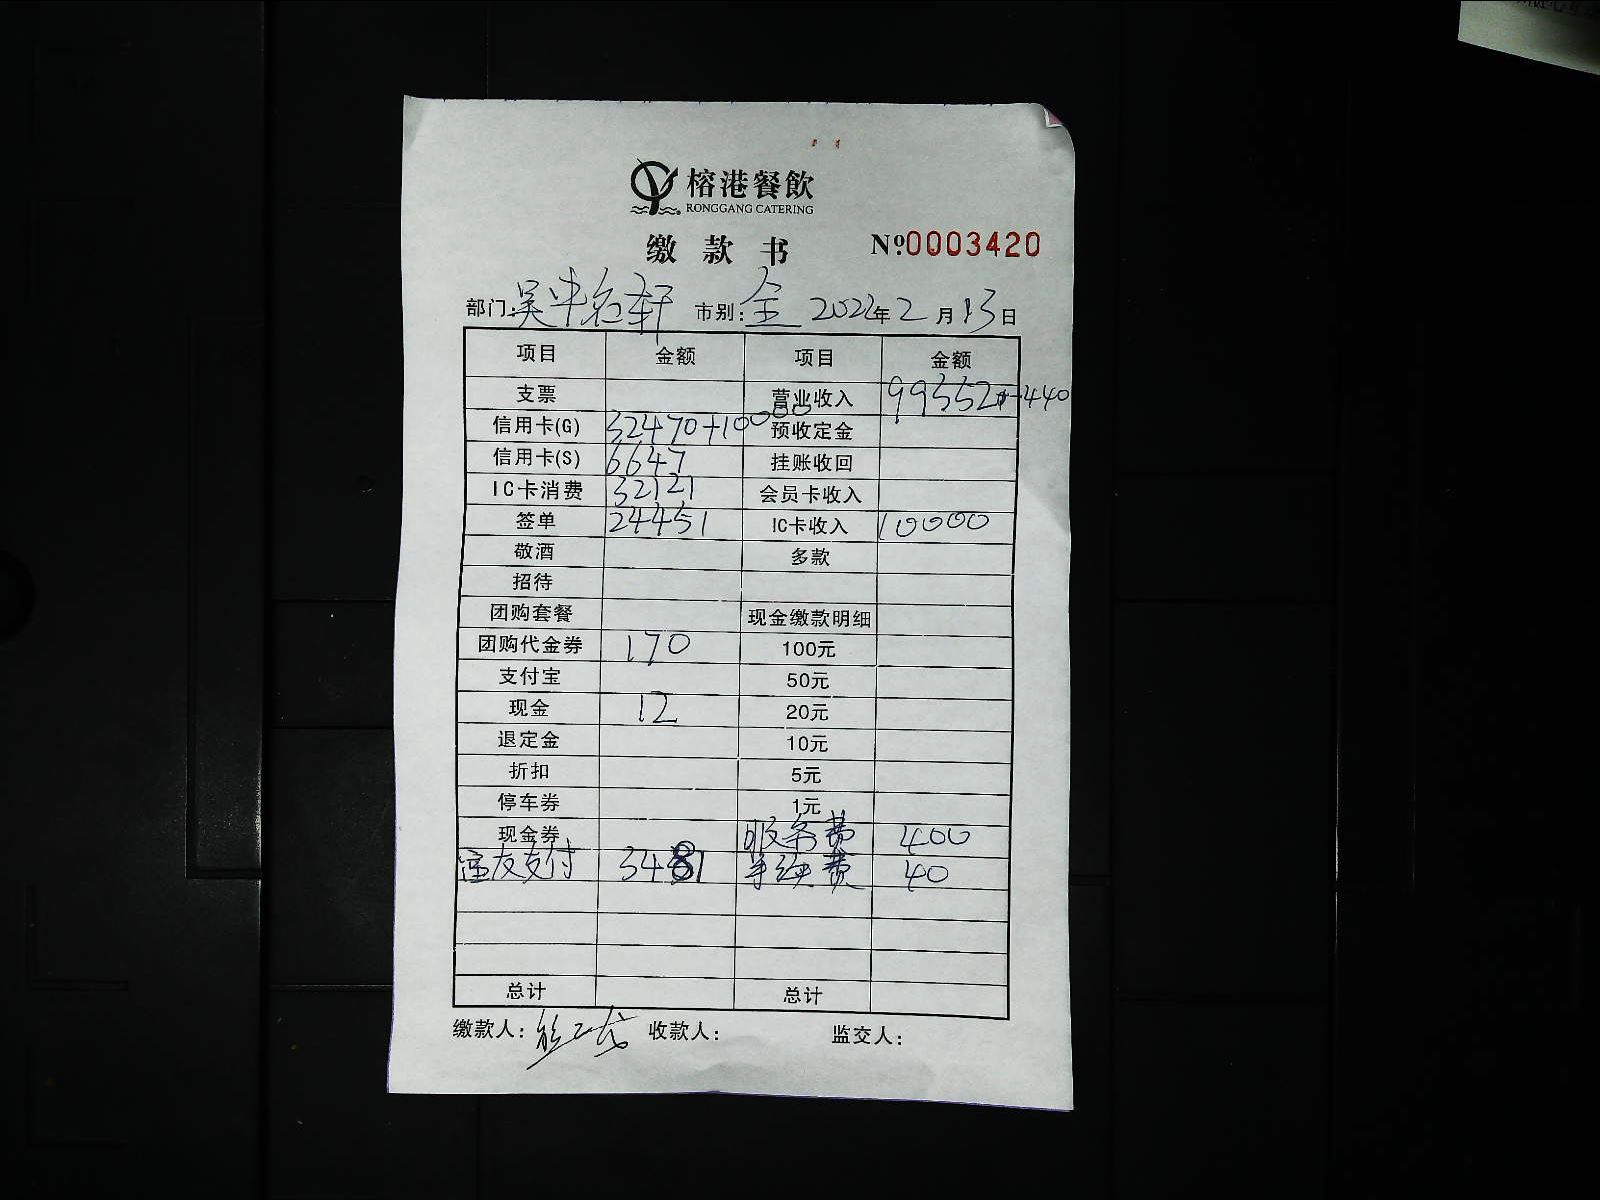 榕港餐飲
RONGGANG CATERING
缴款书 №0003420
部门: 市别: 全 2022年2月13日
项目 金额 项目 金额
支票 营业收入 99352+440
信用卡(G) 32470+10000 预收定金
信用卡(S) 6647 挂账收回
IC卡消费 32121 会员卡收入
签单 24451 IC卡收入 10000
敬酒 多款
招待
团购套餐 现金缴款明细
团购代金券 170 100元
支付宝 50元
现金 12 20元
退定金 10元
折扣 5元
停车券 1元
现金券 服务费 400
富友支付 3481 手续费 40
总计 总计
缴款人: 收款人: 监交人: